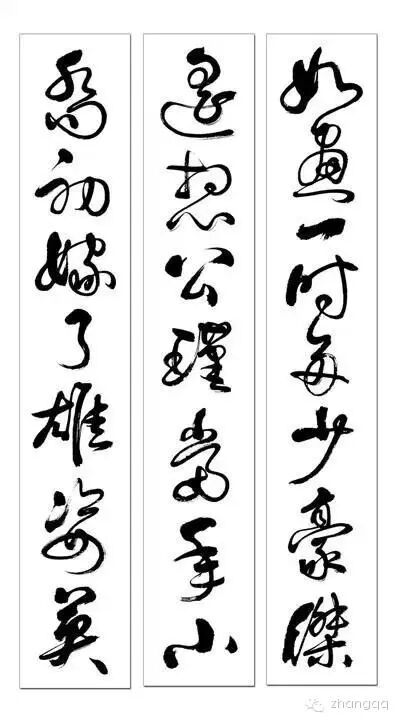 如畫一时多少豪傑
遥想公瑾當年小
喬初嫁了雄姿英
zhangqq